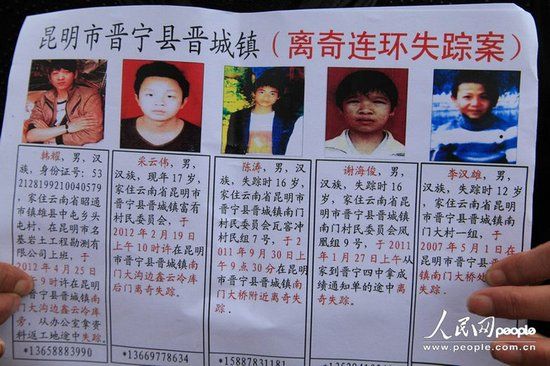 昆明市晋宁县晋城镇（离奇连环失踪案）
韩耀，男，汉
族，身份证号：53
2128199210040579
，家住云南省昭通
市镇雄县中屯乡头
屯村，在昆明市名
基岩土工程勘测有
限公司上班，于
2012年4月25日
上午9时许在昆明
市晋宁县晋城镇南
门大沟边鑫云冷库
旁，从办公室拿资
料返工地途中失踪
*13658883990
采云伟，男，汉
族，现年17岁，
家住云南省昆明市
晋宁县晋城镇富有
村民委员会，于
2012年2月19日
上午10时许在昆明
市晋宁县晋城镇南
门大沟边鑫云冷库
后门离奇失踪。
*13669778634
陈涛，男，汉
族，失踪时16岁，
家住云南省昆明市
晋宁县晋城镇南门
村民委员会瓦窑冲
村民组7号，于201
1年9月30日上午
9点30分在昆明市
晋宁县晋城镇南门
大桥附近离奇失
踪。
*15887831181
谢海俊，男，
汉族，失踪时16
岁，家住云南省昆
明市晋宁县晋城镇
南门村民委员会凤
凰组9号，于2011
年1月27日上午从
家到晋宁四中拿成
绩通知单的途中离
奇失踪。
李汉雄，男，
汉族，失踪时12岁
，家住云南省昆明
市晋宁县晋城镇南
门大村一组，于
2007年5月1日在
昆明市晋宁县晋
城镇南门大桥处
失踪.
人民网 people
www.people.com.cn